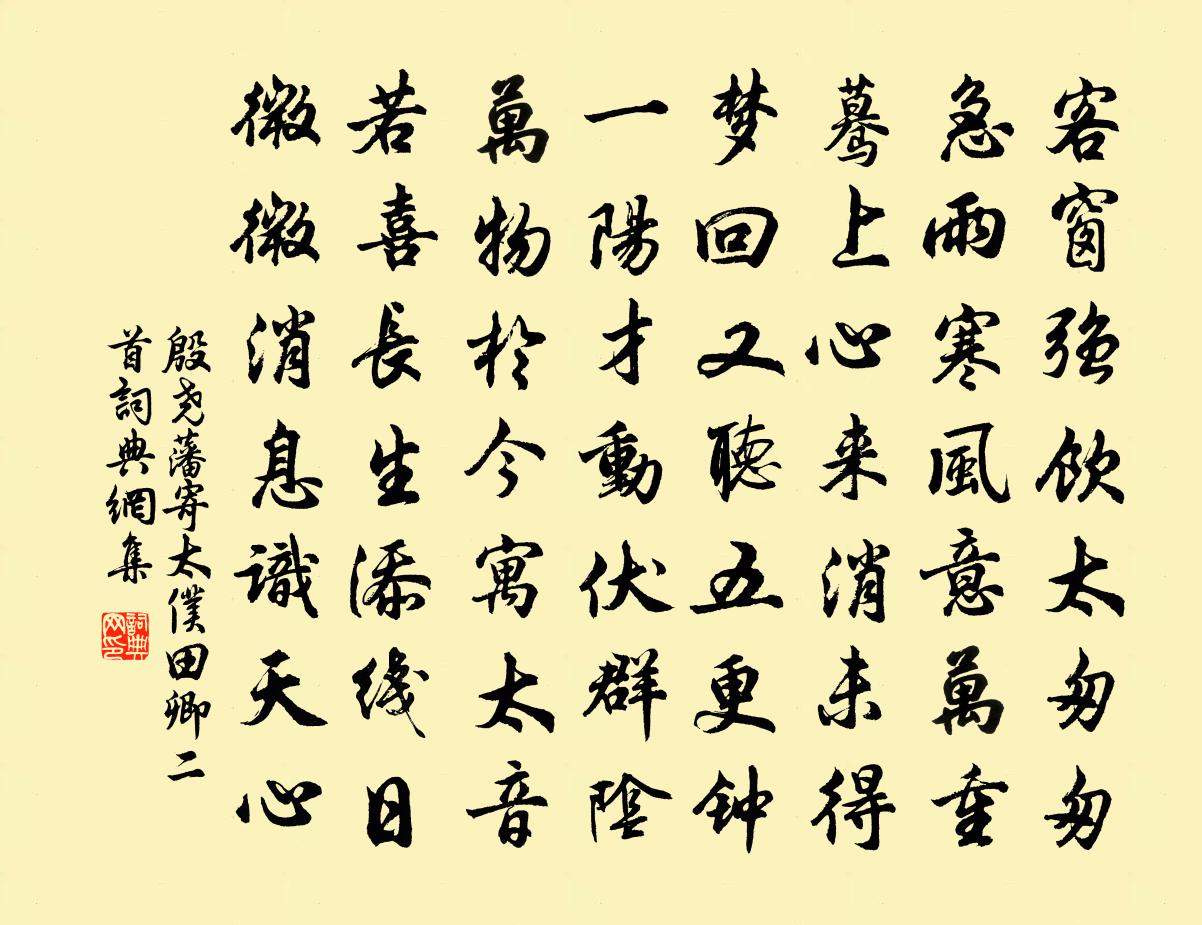 客窗強飲太匆匆
急雨寒風意萬重
驀上心来消未得
梦回又聽五更钟
一陽才動伏群陰
萬物於今寓太音
若喜長生添线日
微微消息識天心
殷尧藩寄太僕田卿二
首詞典網集
詞典
网印